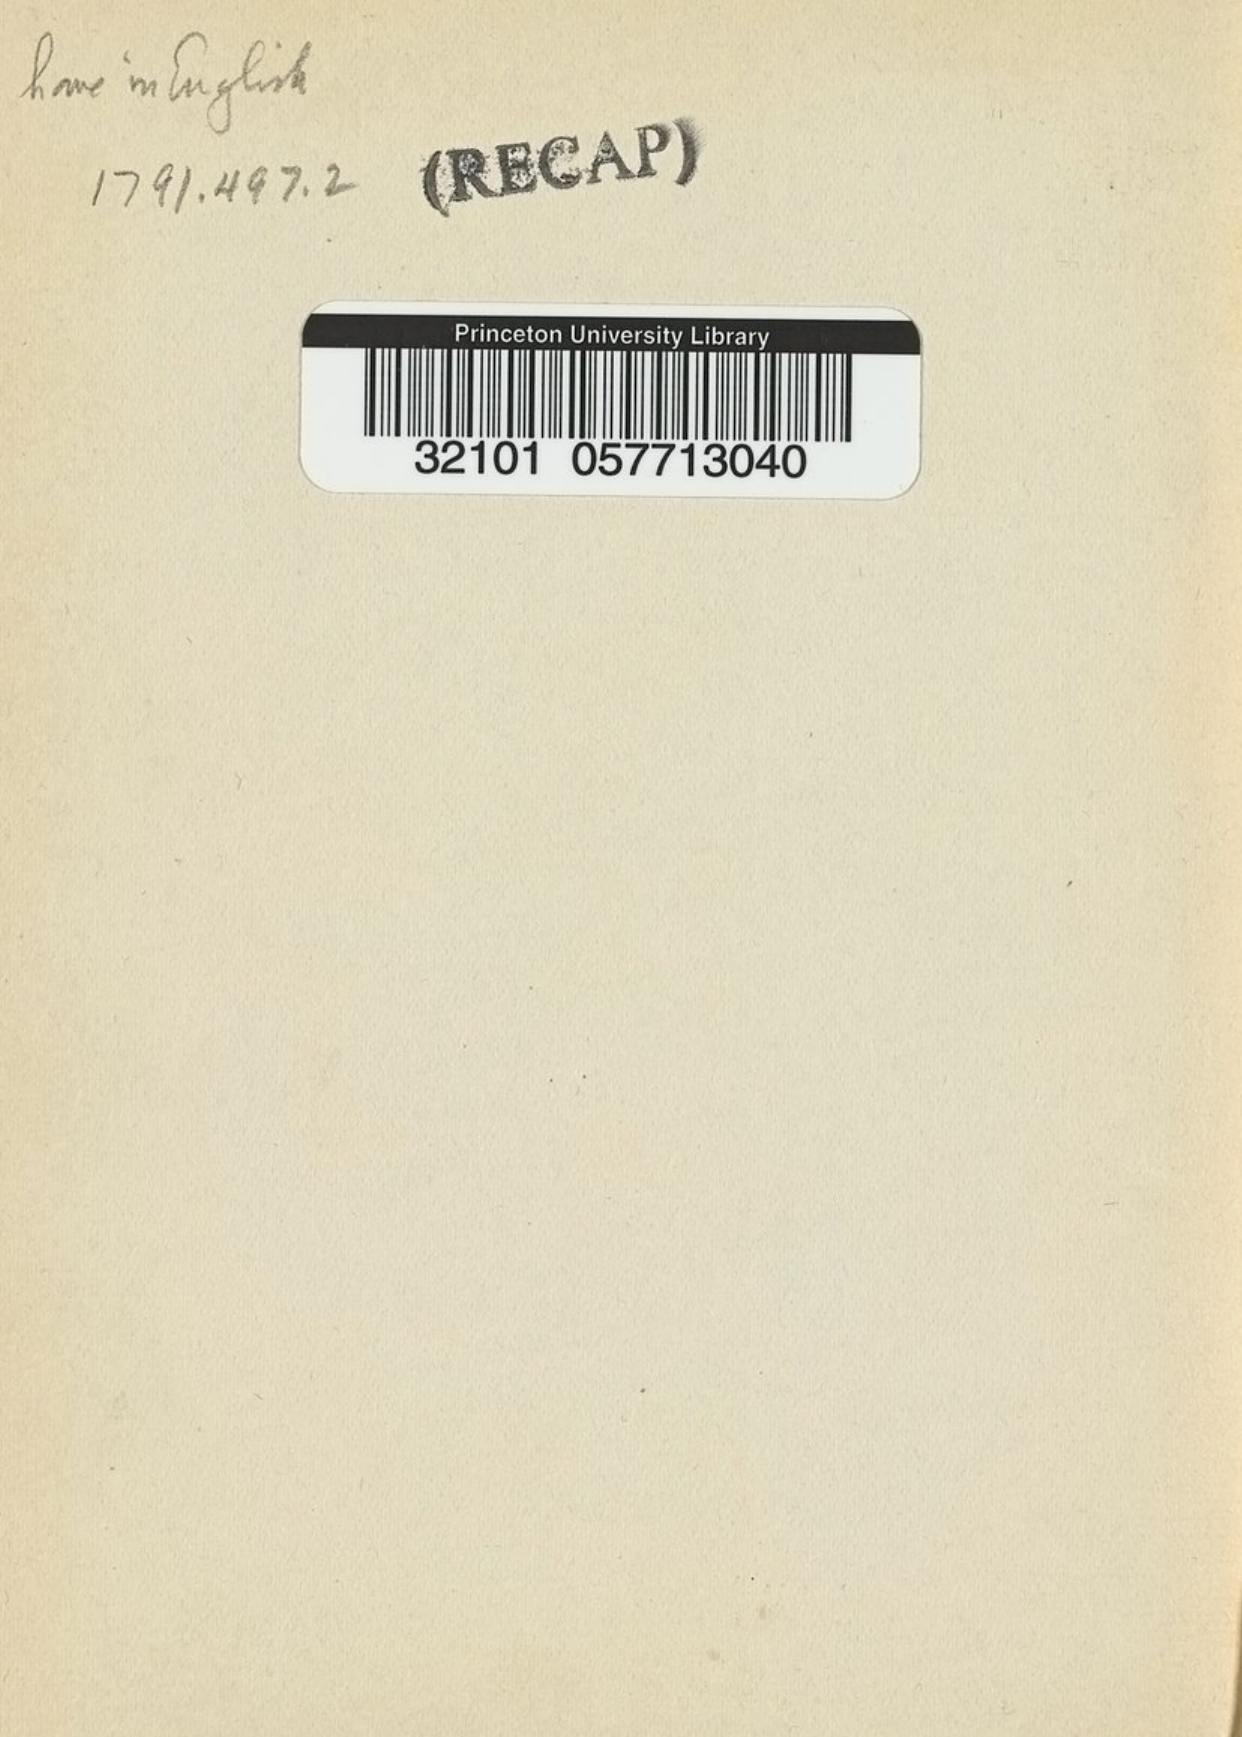 have in English
1791.497.2 (RECAP)
Princeton University Library
32101 057713040